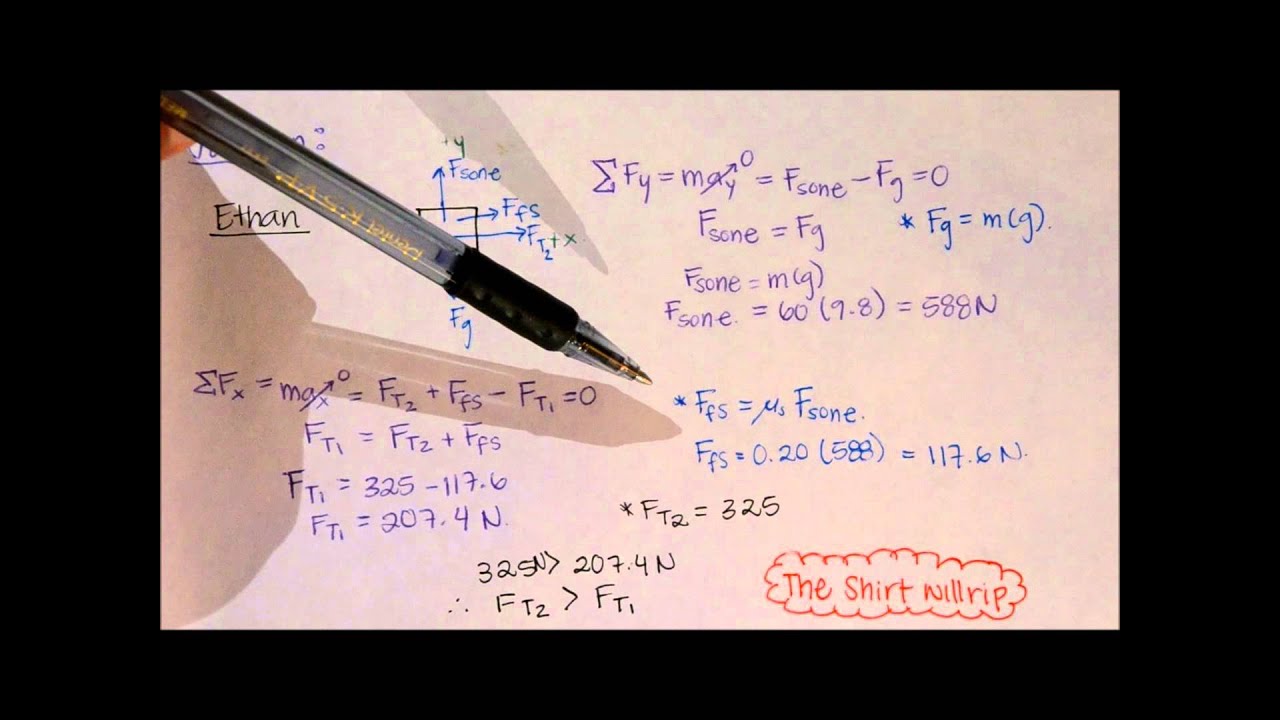 +y
Fsone
Ethan
Ffs
FT₂ +x
Fg
ΣFy = may⁰ = Fsone - Fg = 0
Fsone = Fg
* Fg = m(g).
Fsone = m(g)
Fsone. = 60 (9.8) = 588N
ΣFx = max⁰ = FT₂ + Ffs - FT₁ = 0
FT₁ = FT₂ + Ffs
FT₁ = 325 - 117.6
FT₁ = 207.4 N.
* Ffs = μs Fsone.
Ffs = 0.20 (588) = 117.6 N.
* FT₂ = 325
325N > 207.4 N
∴ FT₂ > FT₁
The Shirt will rip